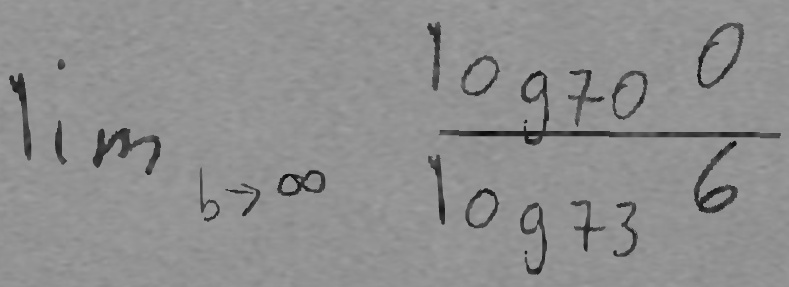 \lim_{b \to \infty} \frac{\log_{70} 0}{\log_{73} 6}